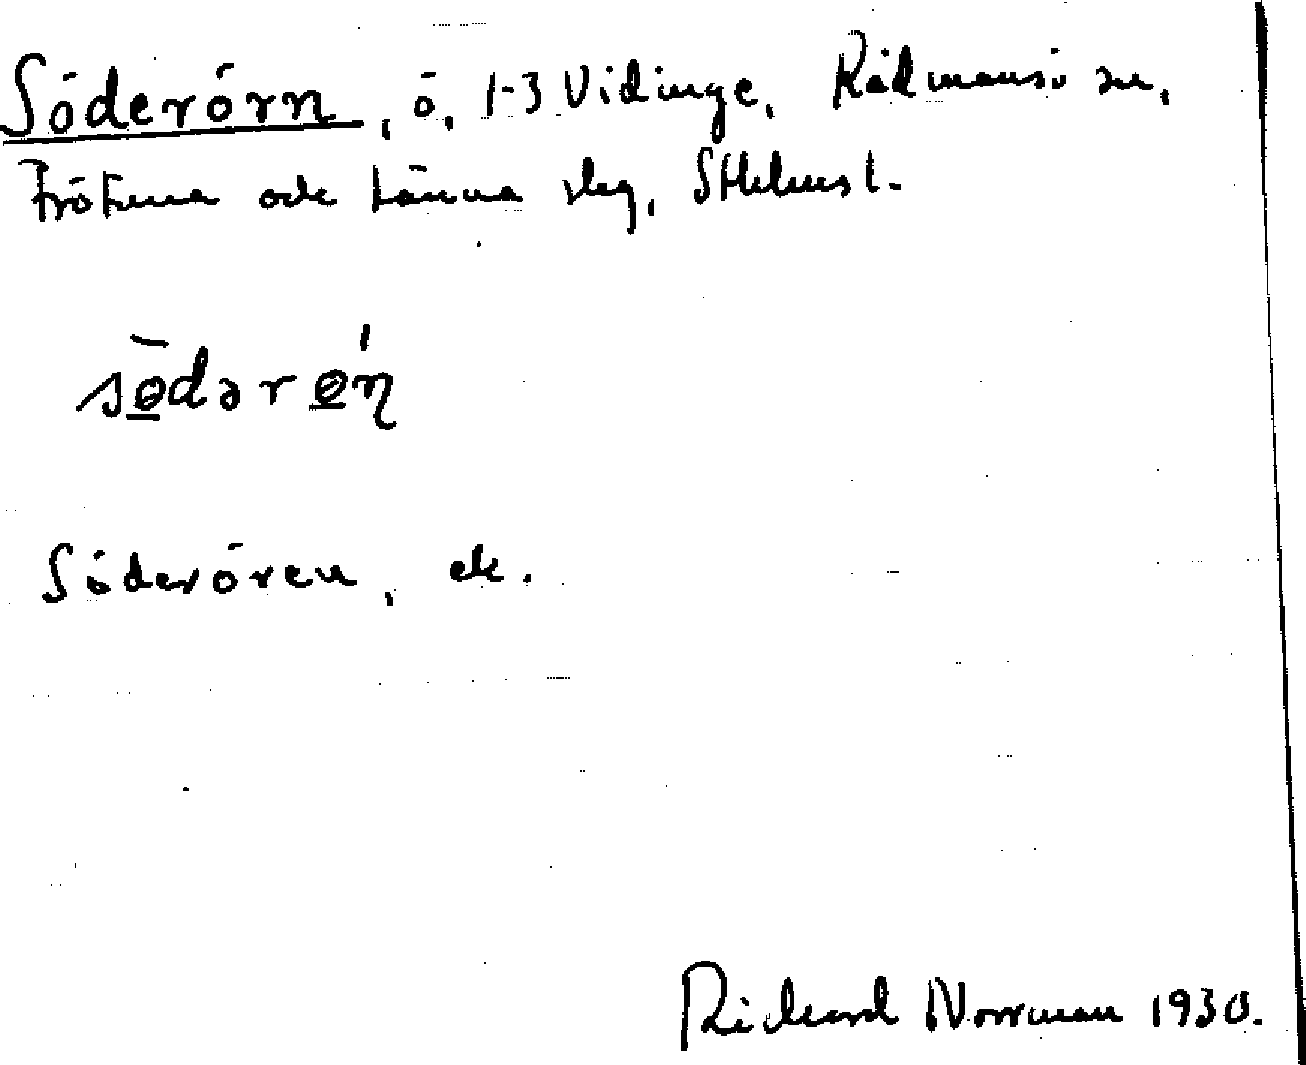 Söderörn, ö, 1-3 Vidinge, Rådmansö sn,
Frötuna och Länna slg, Sthlms l.
södərǿɳ
Söderören, ek.
Richard Norrman 1930.